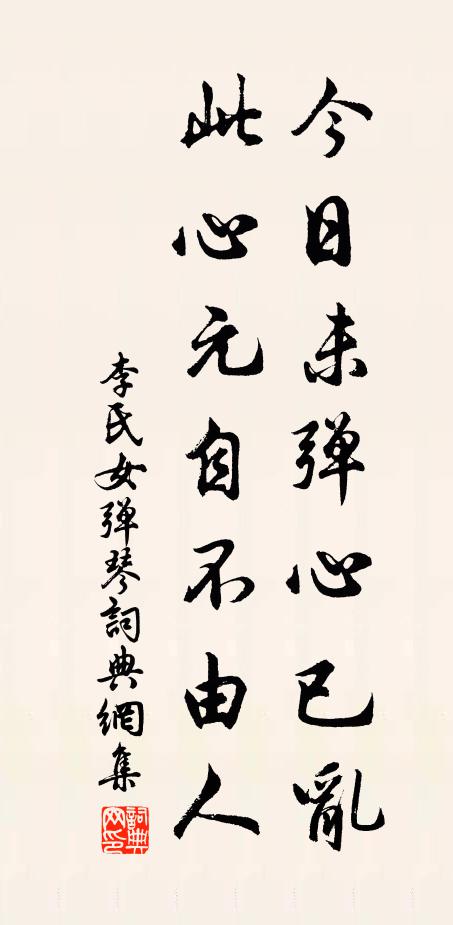 今日未弹心已亂
此心元自不由人
李氏女弹琴詞典網集
詞典网印